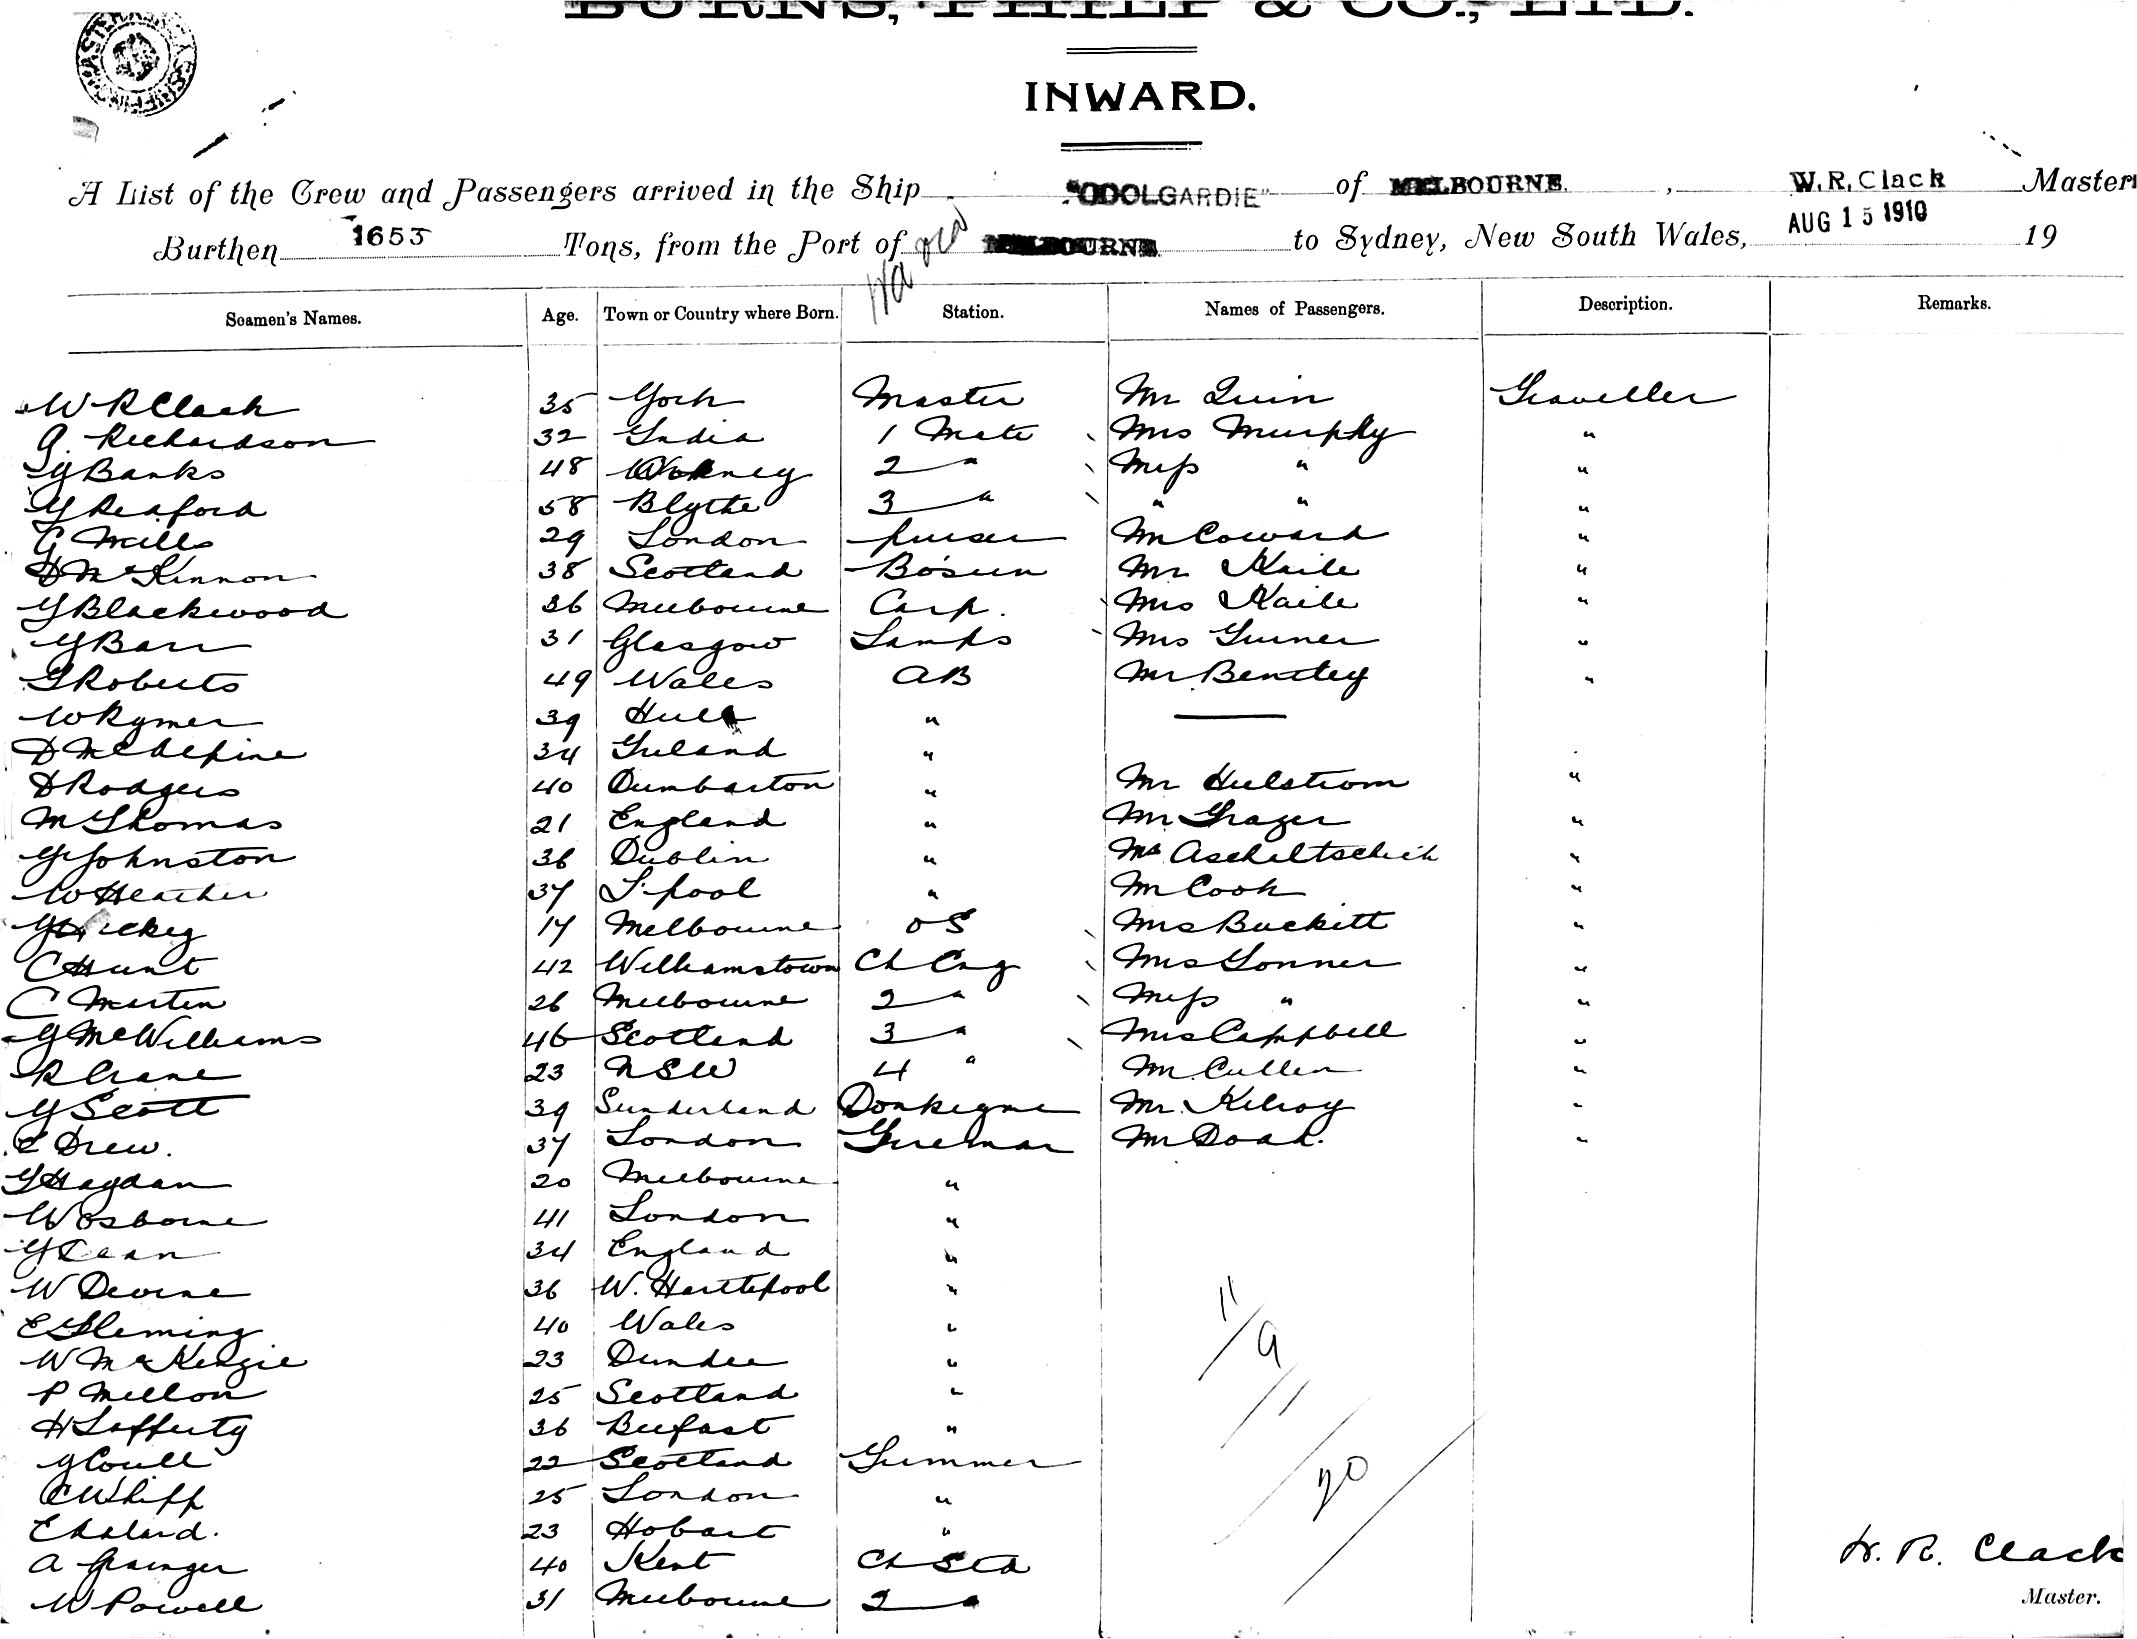 BURNS, PHILP & CO., LTD.
INWARD.
A List of the Crew and Passengers arrived in the Ship "COOLGARDIE" of MELBOURNE, W.R. Clack Master
Burthen 1653 Tons, from the Port of MELBOURNE to Sydney, New South Wales, AUG 15 1910 19
Seamen's Names. Age. Town or Country where Born. Station. Names of Passengers. Description. Remarks.
W R Clack 35 York Master Mr Quin Traveller
A. Richardson 32 India 1 Mate Mrs Murphy "
J Banks 48 Orkney 2 " Miss " "
J Redford 58 Blythe 3 " " " "
G Mills 29 London purser Mr Coward "
D McKinnon 38 Scotland Bosun Mr Haile "
J Blackwood 36 Melbourne Carp. Mrs Haile "
J Barr 31 Glasgow Lamps Mrs Turner "
T Roberts 49 Wales AB Mr Bentley "
W Rymer 39 Hull "
D McAlpine 34 Ireland "
D Rodgers 40 Dumbarton " Mr Hulstrom "
M Thomas 21 England " Mr "
J Johnston 36 Dublin " "
W Heather 37 L'pool " Mr Cook "
J Hickey 17 Melbourne OS Mrs Buckitt "
C Hunt 42 Williamstown Ch Eng Mrs "
C Martin 26 Melbourne 2 " Miss " "
J McWilliams 46 Scotland 3 " Mrs Campbell "
R Crane 23 NSW 4 " Mr Cullen "
J Scott 39 Sunderland Mr. Kilroy "
E Drew. 37 London Fireman Mr Doak. "
T Haydan 20 Melbourne "
W Osborne 41 London "
J Dean 34 England "
W Devine 36 W. Hartlepool "
E Fleming 40 Wales "
W McKenzie 23 Dundee "
P Mellon 25 Scotland "
H Lafferty 36 Belfast "
J Coull 22 Scotland Trimmer
C W Shipp 25 London "
E 23 Hobart "
A Grainger 40 Kent Ch Std
W Powell 31 Melbourne 2 "
11
9
20
W. R. Clack
Master.